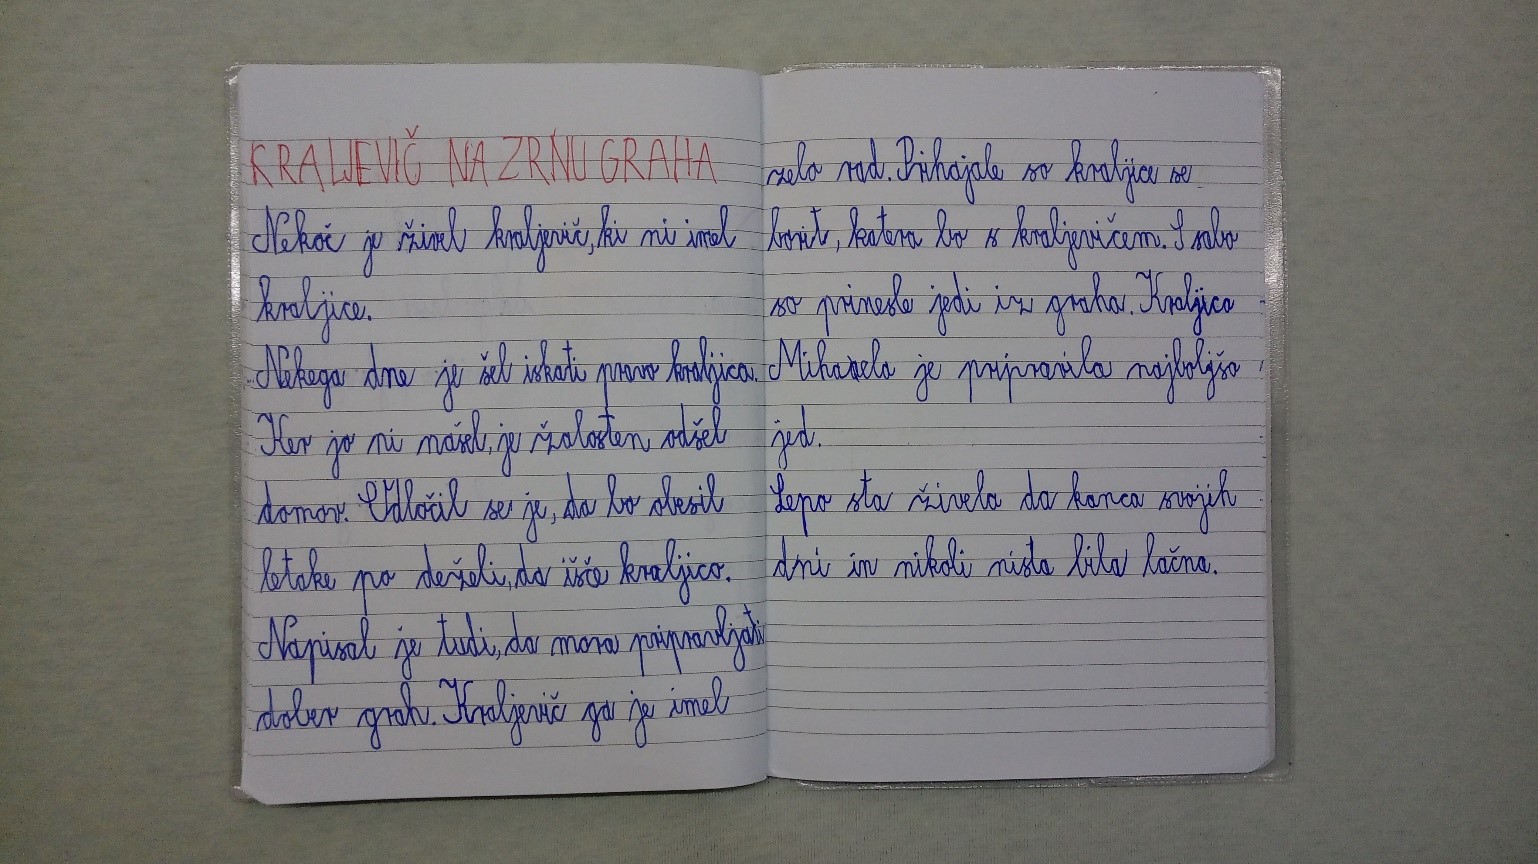 KRALJEVIČ NA ZRNU GRAHA
Nekoč je živel kraljevič, ki ni imel
kraljice.
Nekega dne je šel iskati pravo kraljica.
Ker jo ni našel, je žalosten odšel
domov. Odločil se je, da bo obesil
letake po deželi, da išče kraljico.
Napisal je tudi, da mora pripravljati
dober grah. Kraljevič ga je imel
zelo rad. Prihajale so kraljice se
borit, katera bo s kraljevičem. S sabo
so prinesle jedi iz graha. Kraljica
Mihaela je pripravila najboljšo
jed.
Lepo sta živela do konca svojih
dni in nikoli nista bila lačna.